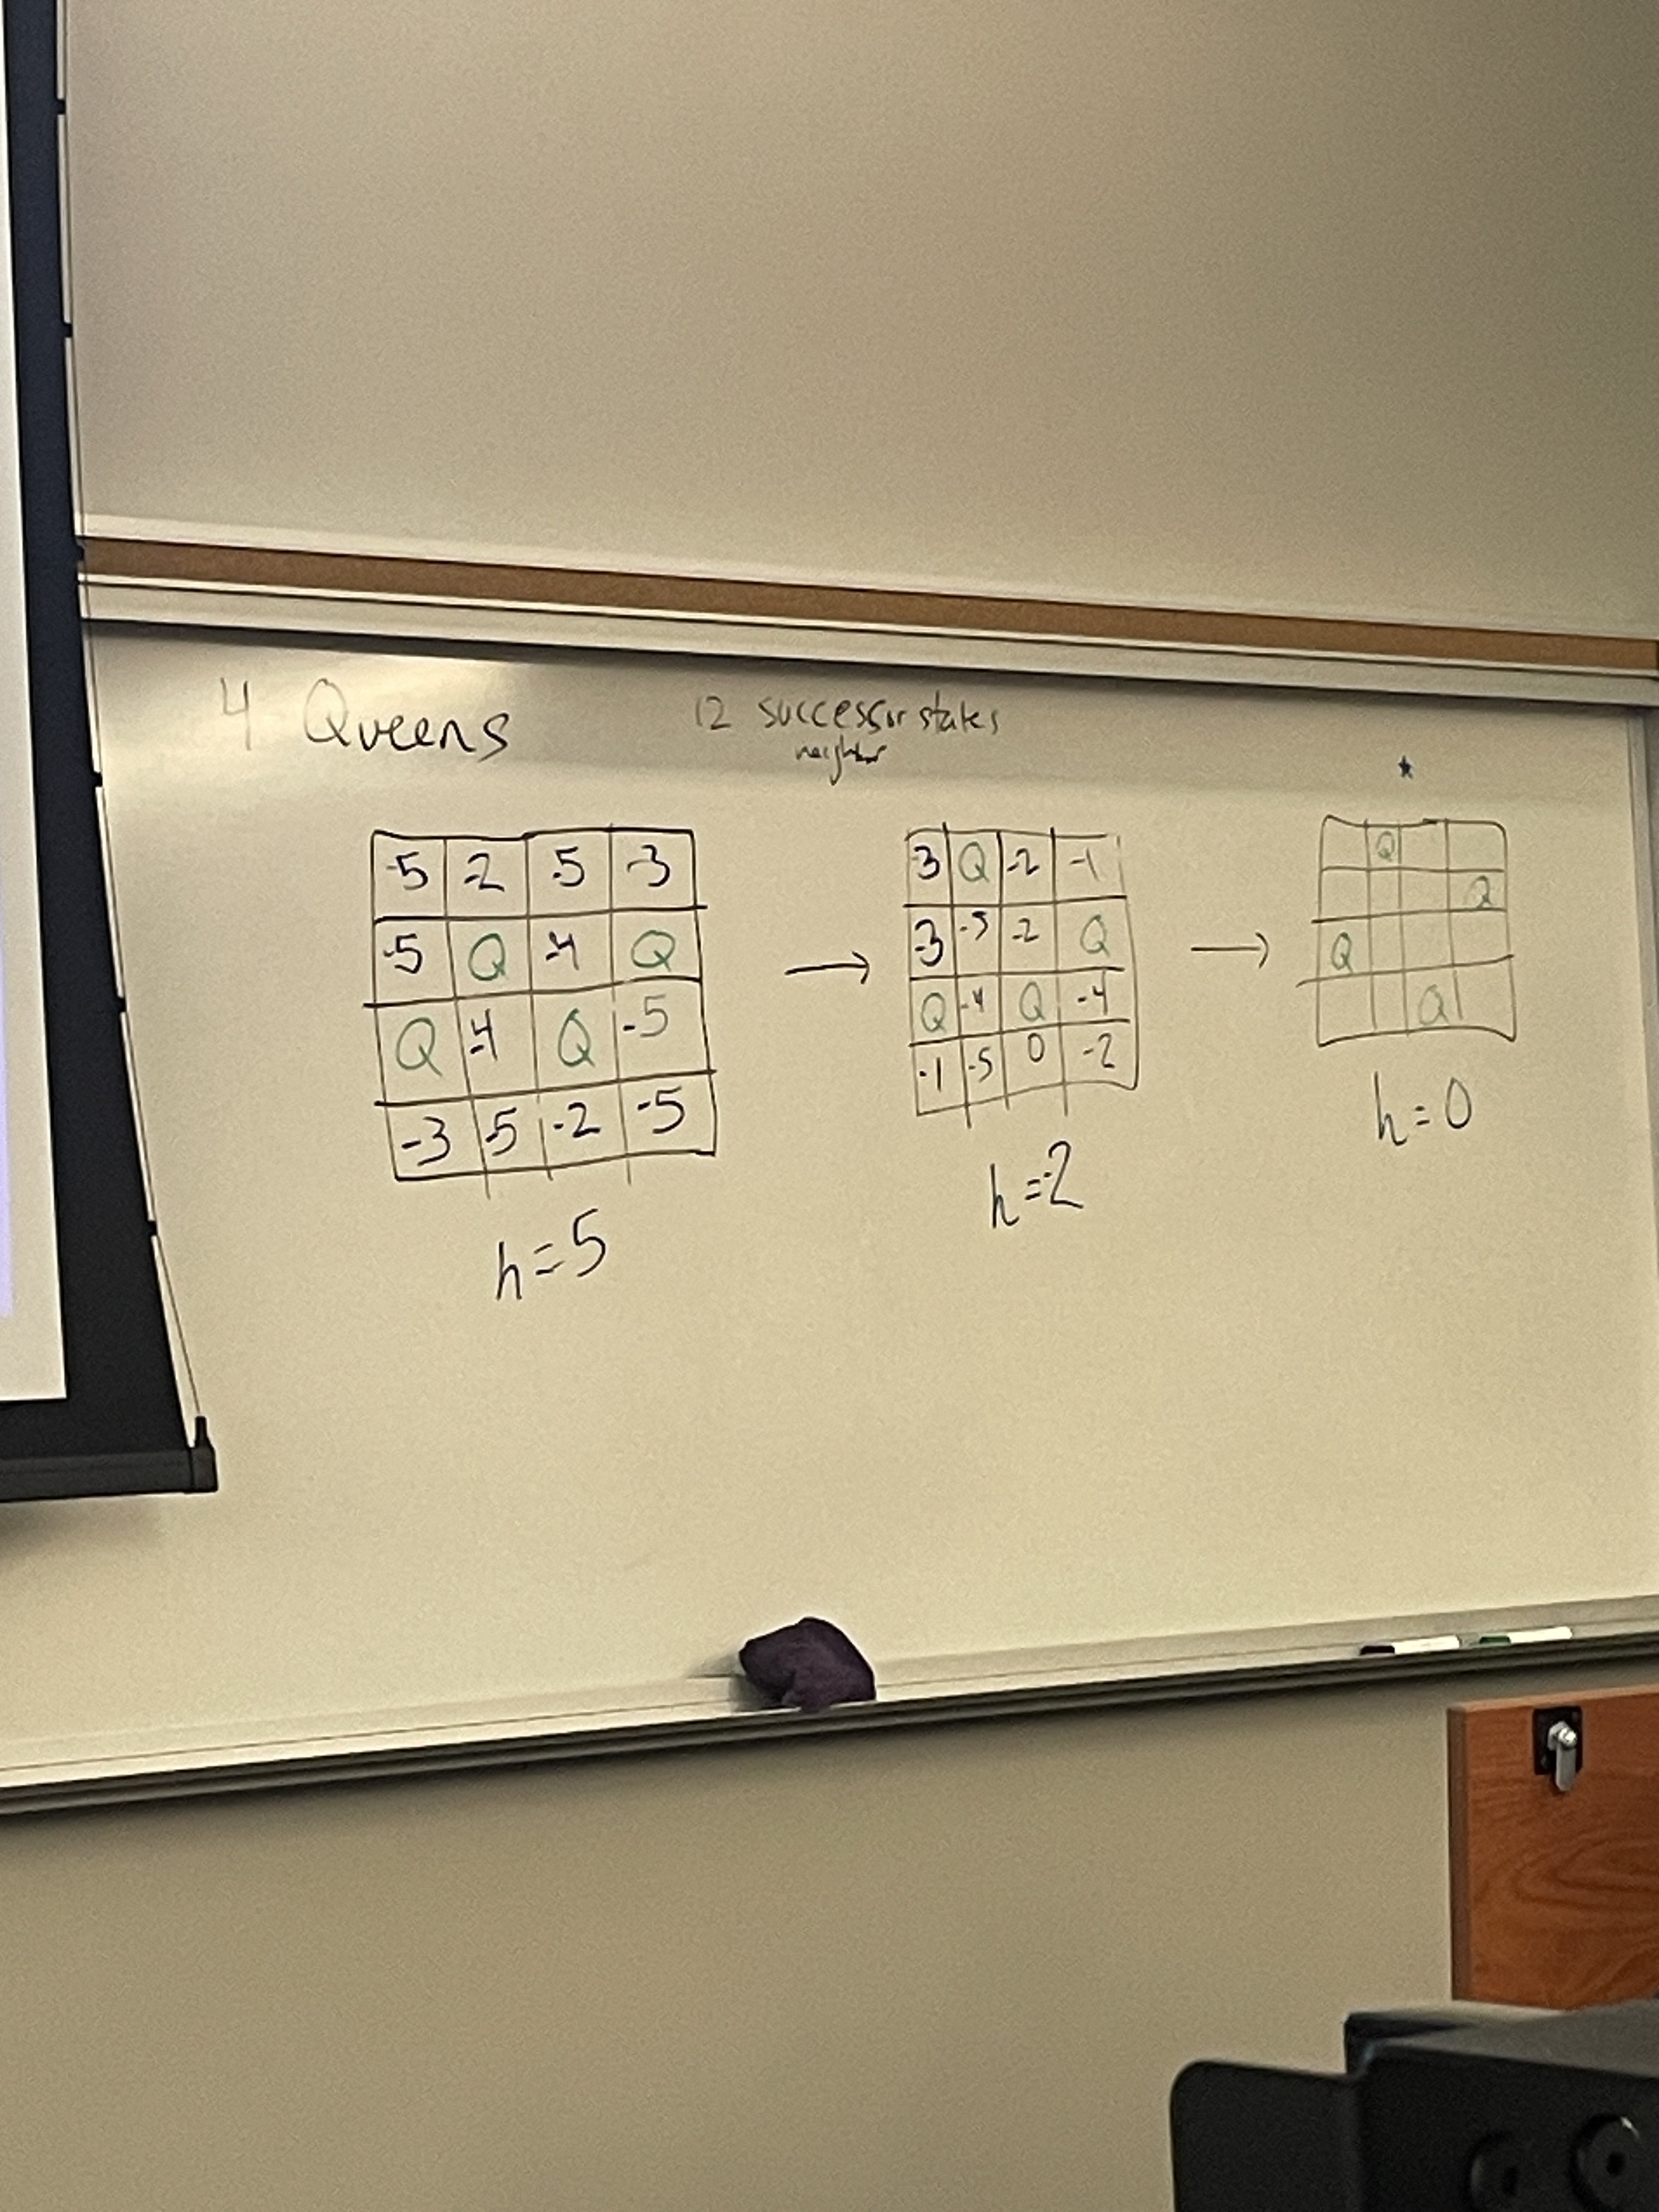 4 Queens
12 successor states
neighbor
-5 -2 -5 -3
-5 Q -4 Q
Q -4 Q -5
-3 -5 -2 -5
h=5
→
-3 Q -2 -1
-3 -5 -2 Q
Q -4 Q -4
-1 -5 0 -2
h=-2
→
★
Q
Q
Q
Q
h=0